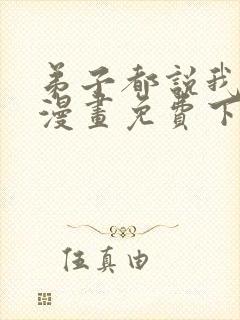 弟子都說我
漫畫免費下
伍真由